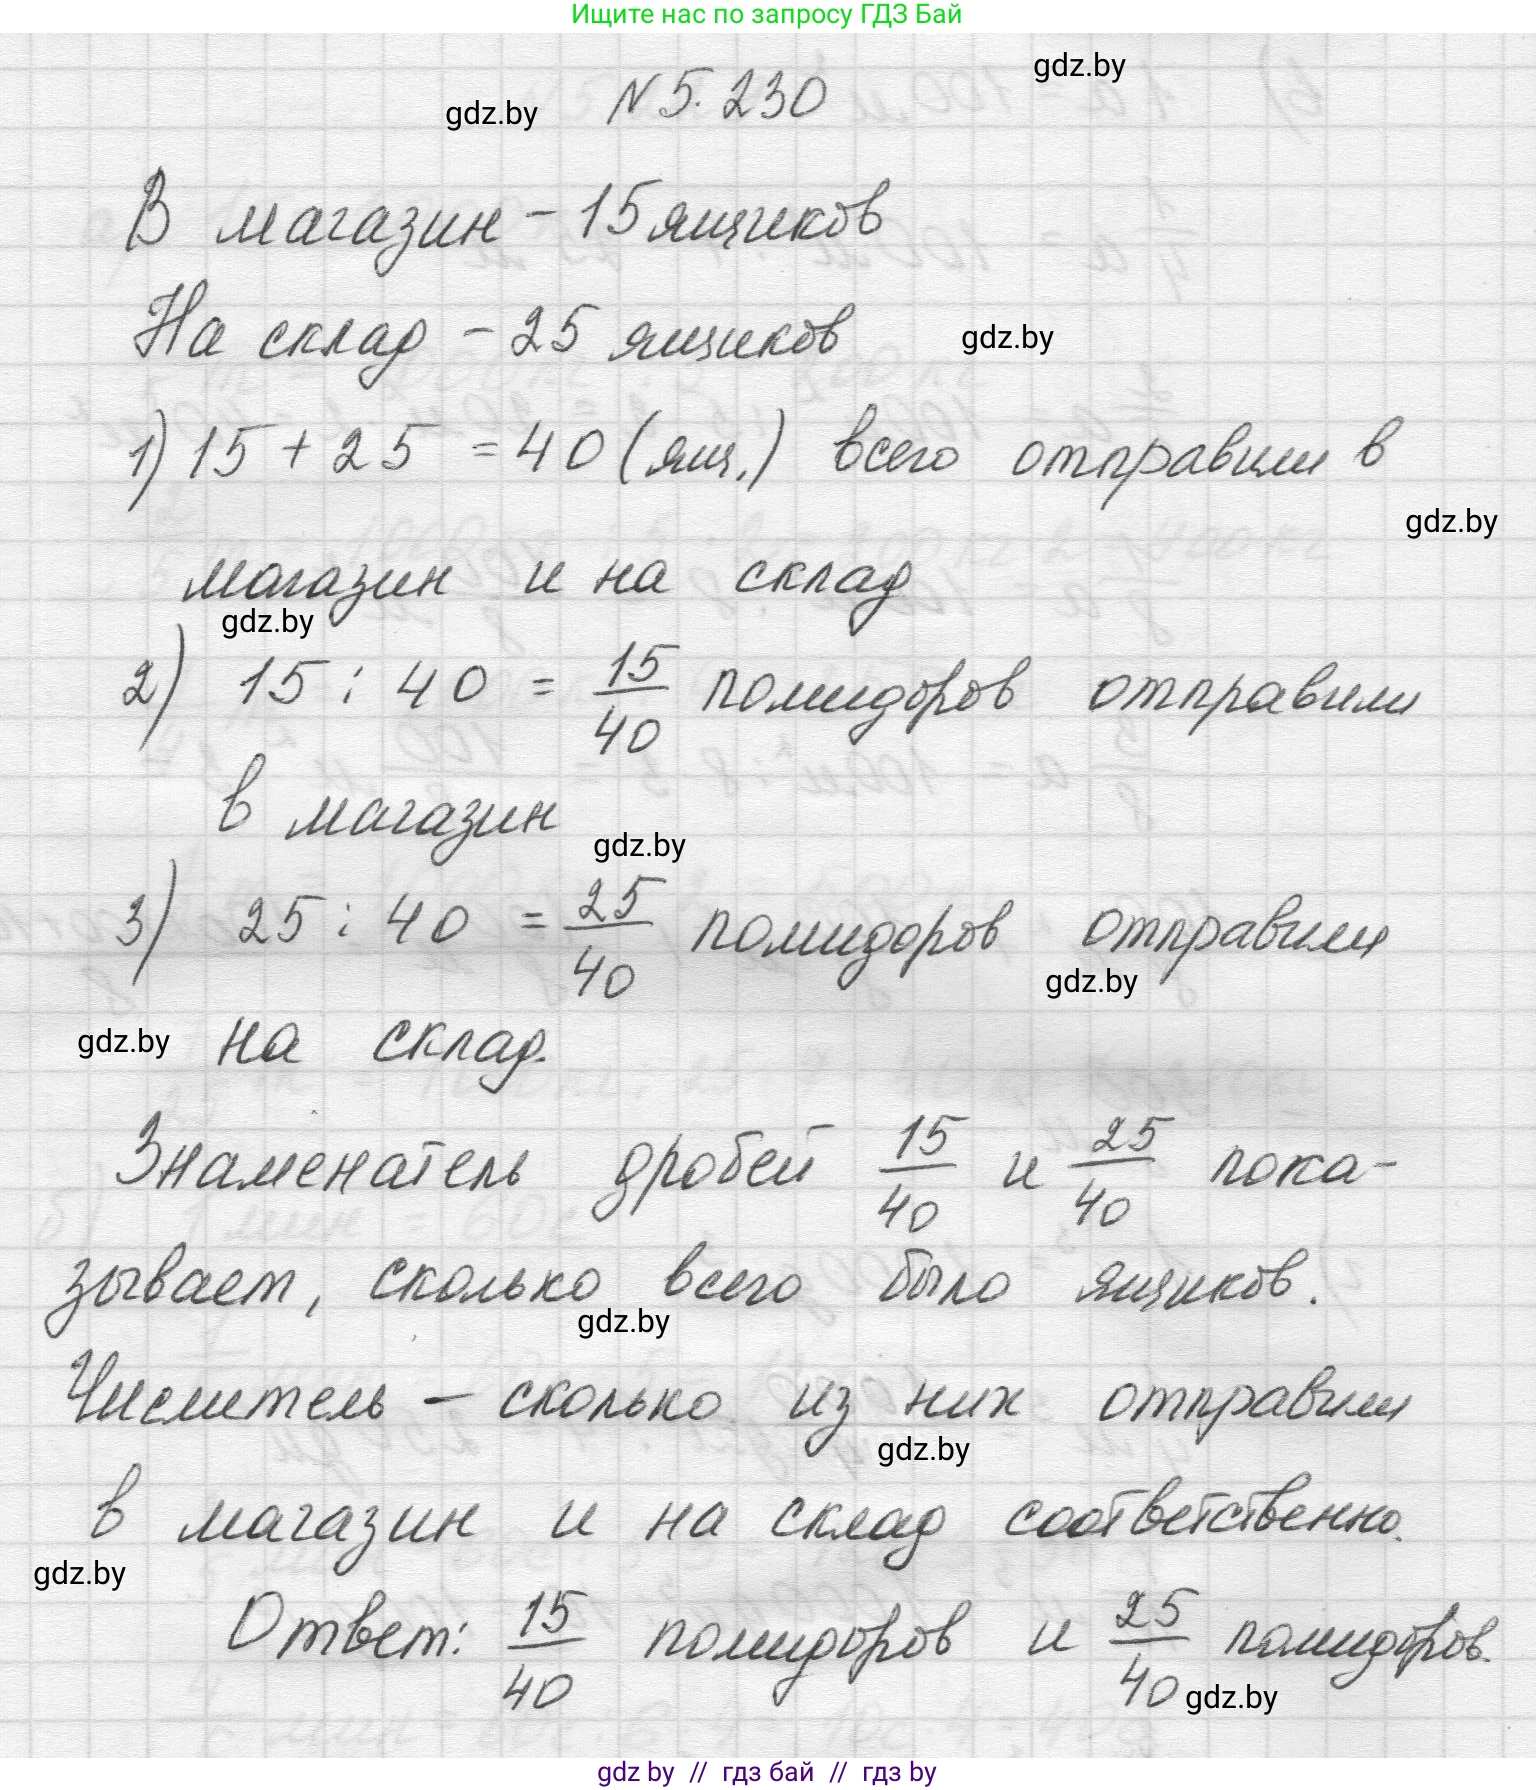 Ищите нас по запросу ГДЗ Бай
gdz.by
gdz.by
N 5.230
В магазин - 15 ящиков
На склад - 25 ящиков
gdz.by
1) 15 + 25 = 40 (ящ.) всего отправили в
gdz.by
магазин и на склад
gdz.by
2) 15 : 40 = 15/40 помидоров отправили
в магазин
gdz.by
3) 25 : 40 = 25/40 помидоров отправили
gdz.by
gdz.by
на склад.
Знаменатель дробей 15/40 и 25/40 пока-
зывает, сколько всего было ящиков.
gdz.by
Числитель - сколько из них отправили
gdz.by
в магазин и на склад соответственно.
gdz.by
Ответ: 15/40 помидоров и 25/40 помидоров.
gdz.by
gdz by // гдз бай // гдз by